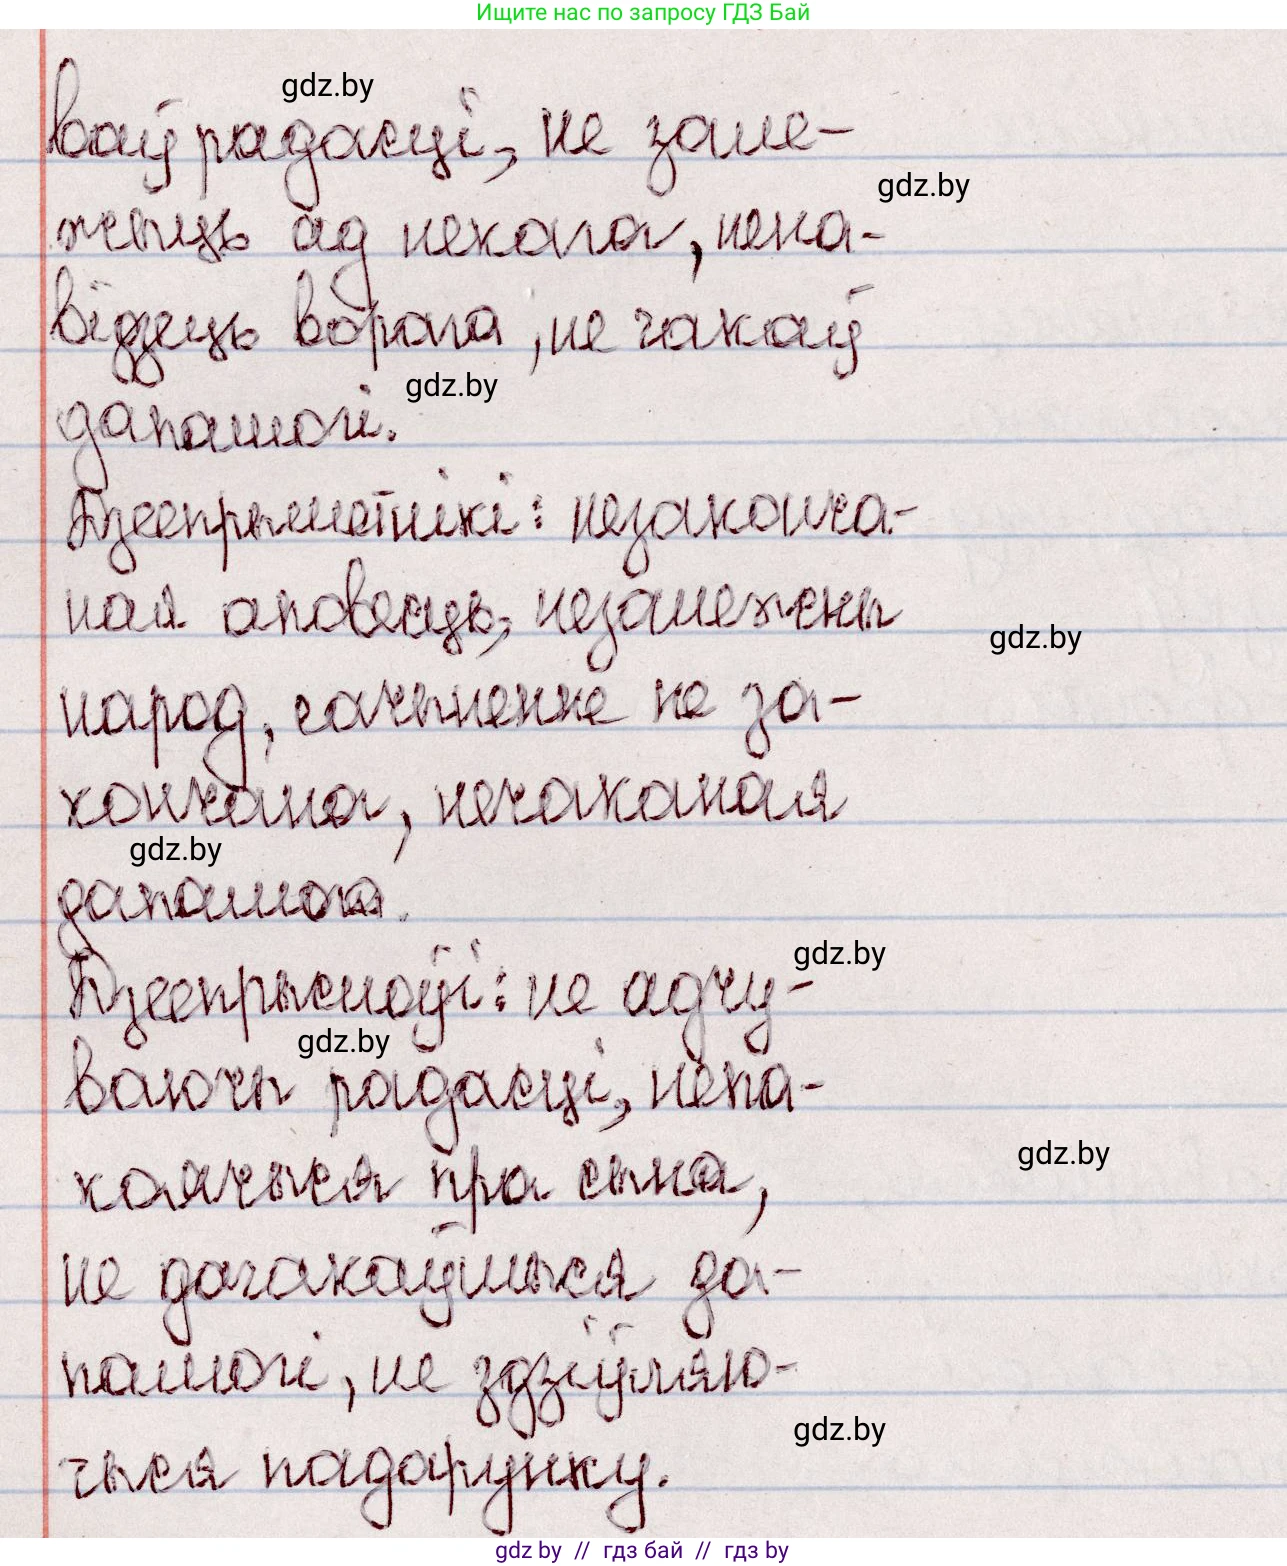 Ищите нас по запросу ГДЗ Бай
gdz.by
ваў радасці, не зале-
gdz.by
жыць ад некага, нена-
відзець ворага, не чакаў
gdz.by
дапамогі.
Дзеепрыметнікі: незаконча-
ная аповесць, незалежны
gdz.by
народ, сачыненне не за-
кончана, нечаканая
gdz.by
дапамога.
gdz.by
Дзеепрыслоўі: не адчу-
gdz.by
ваючы радасці, непа-
gdz.by
коячыся пра сына,
не дачакаўшыся да-
памогі, не здзіўляю-
gdz.by
чыся падарунку.
gdz by // гдз бай // гдз by